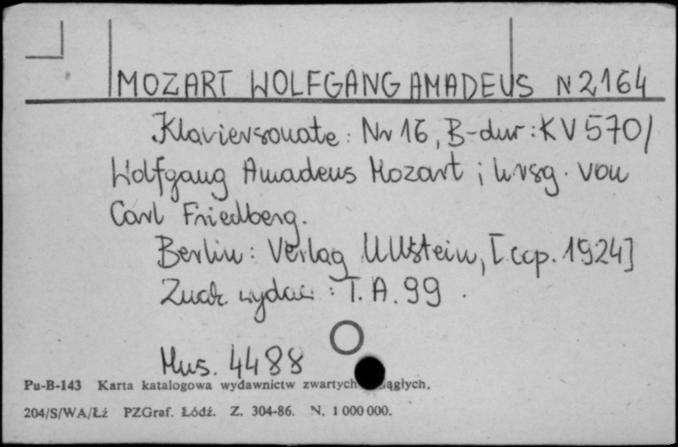 MOZART WOLFGANG AMADEUS N 2164
Klaviersonate : Nr 16, B-dur : KV 570 /
Wolfgang Amadeus Mozart ; hrsg. von
Carl Friedberg.
Berlin : Verlag Ullstein, [cop. 1924]
Znak wydaw. : T. A. 99 .
Mus. 4488
Pu-B-143 Karta katalogowa wydawnictw zwartych
204/S/WA/Łż PZGraf. Łódź. Z. 304-86. N. 1 000 000.